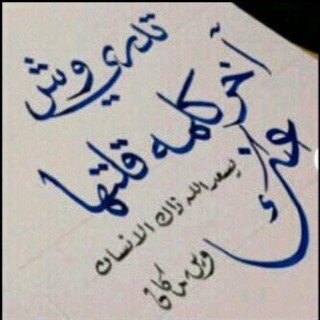 تدري وش
آخر كلمه قلتها
يسعد الله ذاك الانسان
وين ما كان